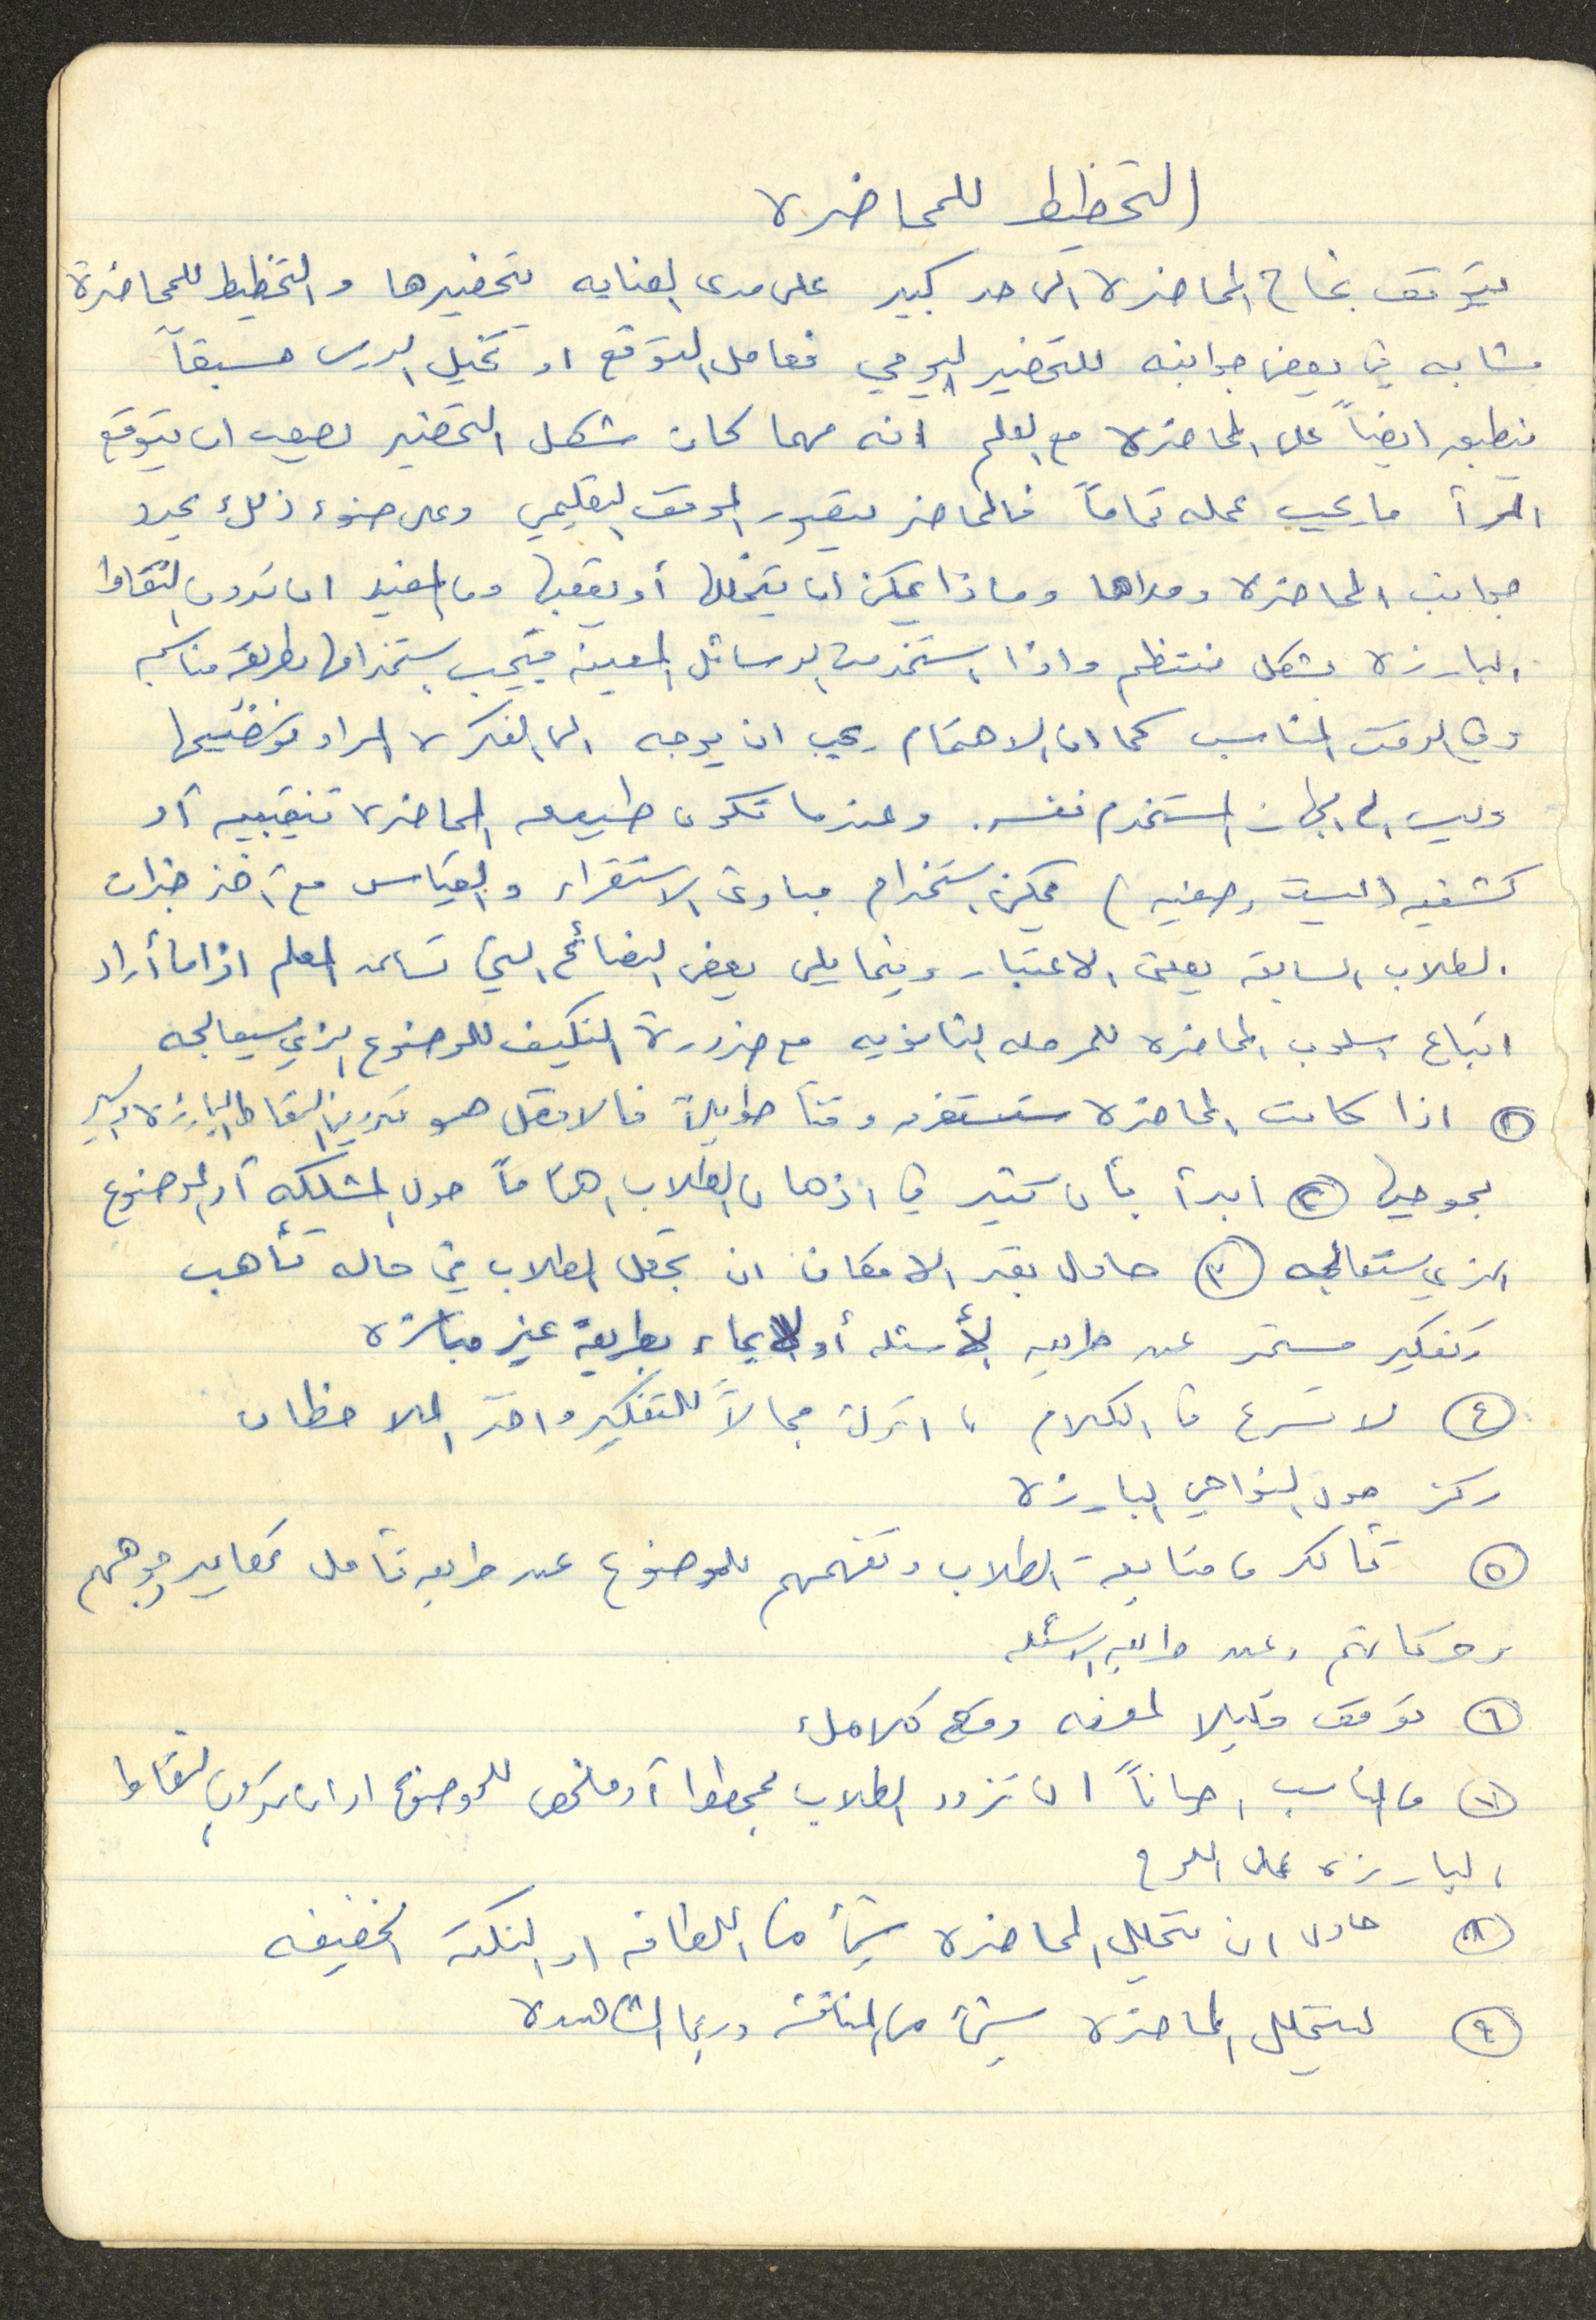 التخطيط للمحاضرة
يتوقف نجاح المحاضرة الى حد كبير على مدى العنايه بتحضيرها والتخطيط للمحاضرة
مشابه في بعض جوانبه للتحضير اليومي فعامل التوقع او تخيل الدرس مسبقاً
ينطبق ايضاً على المحاضرة مع العلم انه مهما كان شكل التحضير يصعب ان يتوقع
المرأ ما يجب عمله تماماً فالمحاضر يتصور الموقف التعليمي وعلى ضوء ذلك يحدد
جوانب المحاضرة ومداها وماذا يمكن ان يتخللها أو يعقبها ومن المفيد ان تدون النقاط
البارزة بشكل منتظم واذا استخدمت الوسائل المعينه فيجب استخدامها بطريقة مناسبه
وفي الوقت المناسب كما ان الاهتمام يجب ان يوجه الى الفكرة المراد توضيحها
وليس الى الجهاز المستخدم نفسه. وعندما تكون طبيعه المحاضرة تنقيبيه أو
كشفيه (ليست وصفيه) فيمكن استخدام مبادئ الاستقراء والقياس مع أخذ خبرات
الطلاب السابقه بعين الاعتبار وفيما يلي بعض النصائح التي تساعد المعلم اذا ما أراد
اتباع اسلوب المحاضره للمرحله الثانويه مع ضرورة التكيف للموضوع الذي سيعالجه
١ اذا كانت المحاضرة ستستغرق وقتاً طويلاً فالافضل هو تدوين النقاط البارزة والسير
بموجبها ٢ ابدأ بأن تثير في اذهان الطلاب اهتماماً حول المشكله أو الموضوع
الذي ستعالجه ٣ حاول بقدر الامكان ان تجعل الطلاب في حاله تأهب
وتفكير مستمر عن طريق الأسئله أو الايحاء بطريقة غير مباشره
٤ لا تسرع في الكلام ، اترك مجالاً للتفكير واخذ الملاحظات
ركز حول النواحي البارزة
٥ تأكد من متابعة الطلاب وتفهمهم للموضوع عن طريق تأمل تعابير وجوههم
وحركاتهم وعن طريق الاسئله
٦ توقف قليلا لمعرفه وقع كلامك
٧ من المناسب احياناً ان تزود الطلاب بمخطط أو ملخص للموضوع او ان تدون النقاط
البارزه على اللوح
٨ حاول ان يتخلل المحاضره شيئاً من اللطافه او النكته الخفيفه
٩ ليتخلل المحاضرة شيئاً من المناقشه وربما المشاهدة